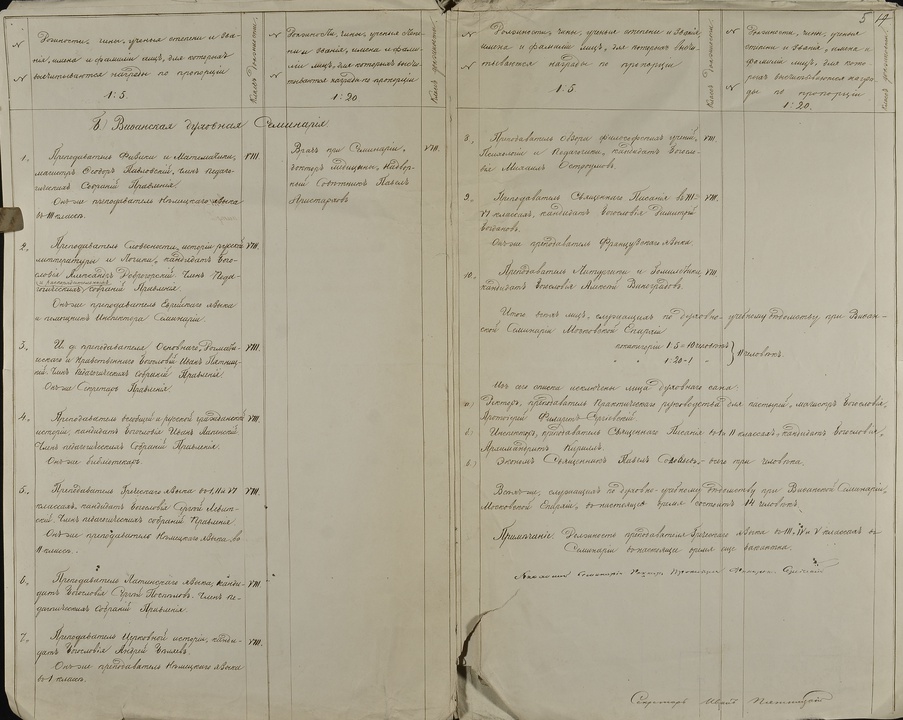 5
14
№ Должности, чины, ученыя степени и зва-
нія, имена и фамиліи лицъ, для которыхъ
№ высчитываются награды по пропорціи
1:5.
Классъ должности.
№ Должности, чины, ученыя степе-
ни и званія, имена и фами-
ліи лицъ, для которыхъ высчи-
тываются награды по пропорціи
№ 1:20.
Классъ должности.
б.) Виѳанская духовная Семинарія.
1. Преподаватель Физики и Математики, VIII.
магистръ Ѳеодоръ Павловскій, членъ Педаго-
гическихъ Собраній Правленія.
Онъ же преподаватель Нѣмецкаго языка
въ III классѣ.
Врачъ при Семинаріи, VIII.
докторъ медицины, Надвор-
ный Совѣтникъ Павелъ
Аристарховъ
2. Преподаватель Словесности, исторіи русской VIII.
литературы и Логики, кандидатъ бого-
словія Александръ Доброгорскій. Членъ Педа-
гогическихъ собраній Правленія.
Онъ же преподаватель Еврейскаго языка
и помощникъ Инспектора Семинаріи.
3. И. д. преподавателя Основнаго, Догмати- VIII.
ческаго и Нравственнаго богословія Иванъ Пятниц-
кій. Членъ Педагогическихъ собраній Правленія
Онъ же Секретарь Правленія.
4. Преподаватель всеобщей и русской гражданской VIII.
исторіи, кандидатъ богословія Иванъ
Членъ педагогическихъ Собраній Правленія.
Онъ же библіотекарь.
5. Преподаватель Греческаго языка въ I, II и VI VIII.
классахъ, кандидатъ богословія Сергѣй
Членъ педагогическихъ собраній Правленія
Онъ же преподаватель Нѣмецкаго языка во
II классѣ.
6. Преподаватель Латинскаго языка, канди- VIII.
датъ богословія Сергѣй Поспѣловъ. Членъ пе-
дагогическихъ собраній Правленія.
7. Преподаватель Церковной исторіи, канди- VIII.
датъ богословія Андрей Бѣляевъ.
Онъ же преподаватель Нѣмецкаго языка
въ I классѣ.
№ Должности, чины, ученыя степени и званія,
имена и фамиліи лицъ, для которыхъ высчи-
№ тываются награды по пропорціи
1:5.
Классъ должности.
№ Должности, чины, ученыя
степени и званія, имена и
фамиліи лицъ, для кото-
рыхъ высчитываются награ-
№ ды по пропорціи
1:20.
Классъ должности.
8. Преподаватель Обзора философскихъ ученій, VIII.
Психологіи и Педагогики, кандидатъ богосло-
вія Михаилъ Остроумовъ.
9. Преподаватель Священнаго Писанія въ III- VIII.
VI классахъ, кандидатъ богословія Димитрій
Богдановъ.
Онъ же преподаватель Французскаго языка.
10. Преподаватель Литургики и Гомилетики, VIII.
кандидатъ богословія Алексѣй Виноградовъ.
Итого всѣхъ лицъ, служащихъ по духовно-учебному вѣдомству при Виѳан-
ской Семинаріи Московской Епархіи
по категоріи 1:5 = 10 человѣкъ
" " 1:20 - 1 "
11 человѣкъ.
Изъ сего списка исключены лица духовнаго сана:
а.) Ректоръ, преподаватель Практическаго руководства для пастырей, магистръ богословія,
Протоіерей Филаретъ Сергіевскій.
б.) Инспекторъ, преподаватель Священнаго Писанія въ I и II классахъ, кандидатъ богословія,
Архимандритъ Кириллъ.
в.) Экономъ Священникъ Павелъ Соловьевъ, - всего три человѣка.
Всѣхъ же, служащихъ по духовно-учебному вѣдомству при Виѳанской Семинаріи,
Московской Епархіи, въ настоящее время состоитъ 14 человѣкъ.
Примѣчаніе. Должность преподавателя Греческаго языка въ III, IV и V классахъ въ
Семинаріи въ настоящее время еще вакантна.
Семинаріи Ректоръ, Протоіерей Филаретъ Сергіевскій
Секретарь Иванъ Пятницкій